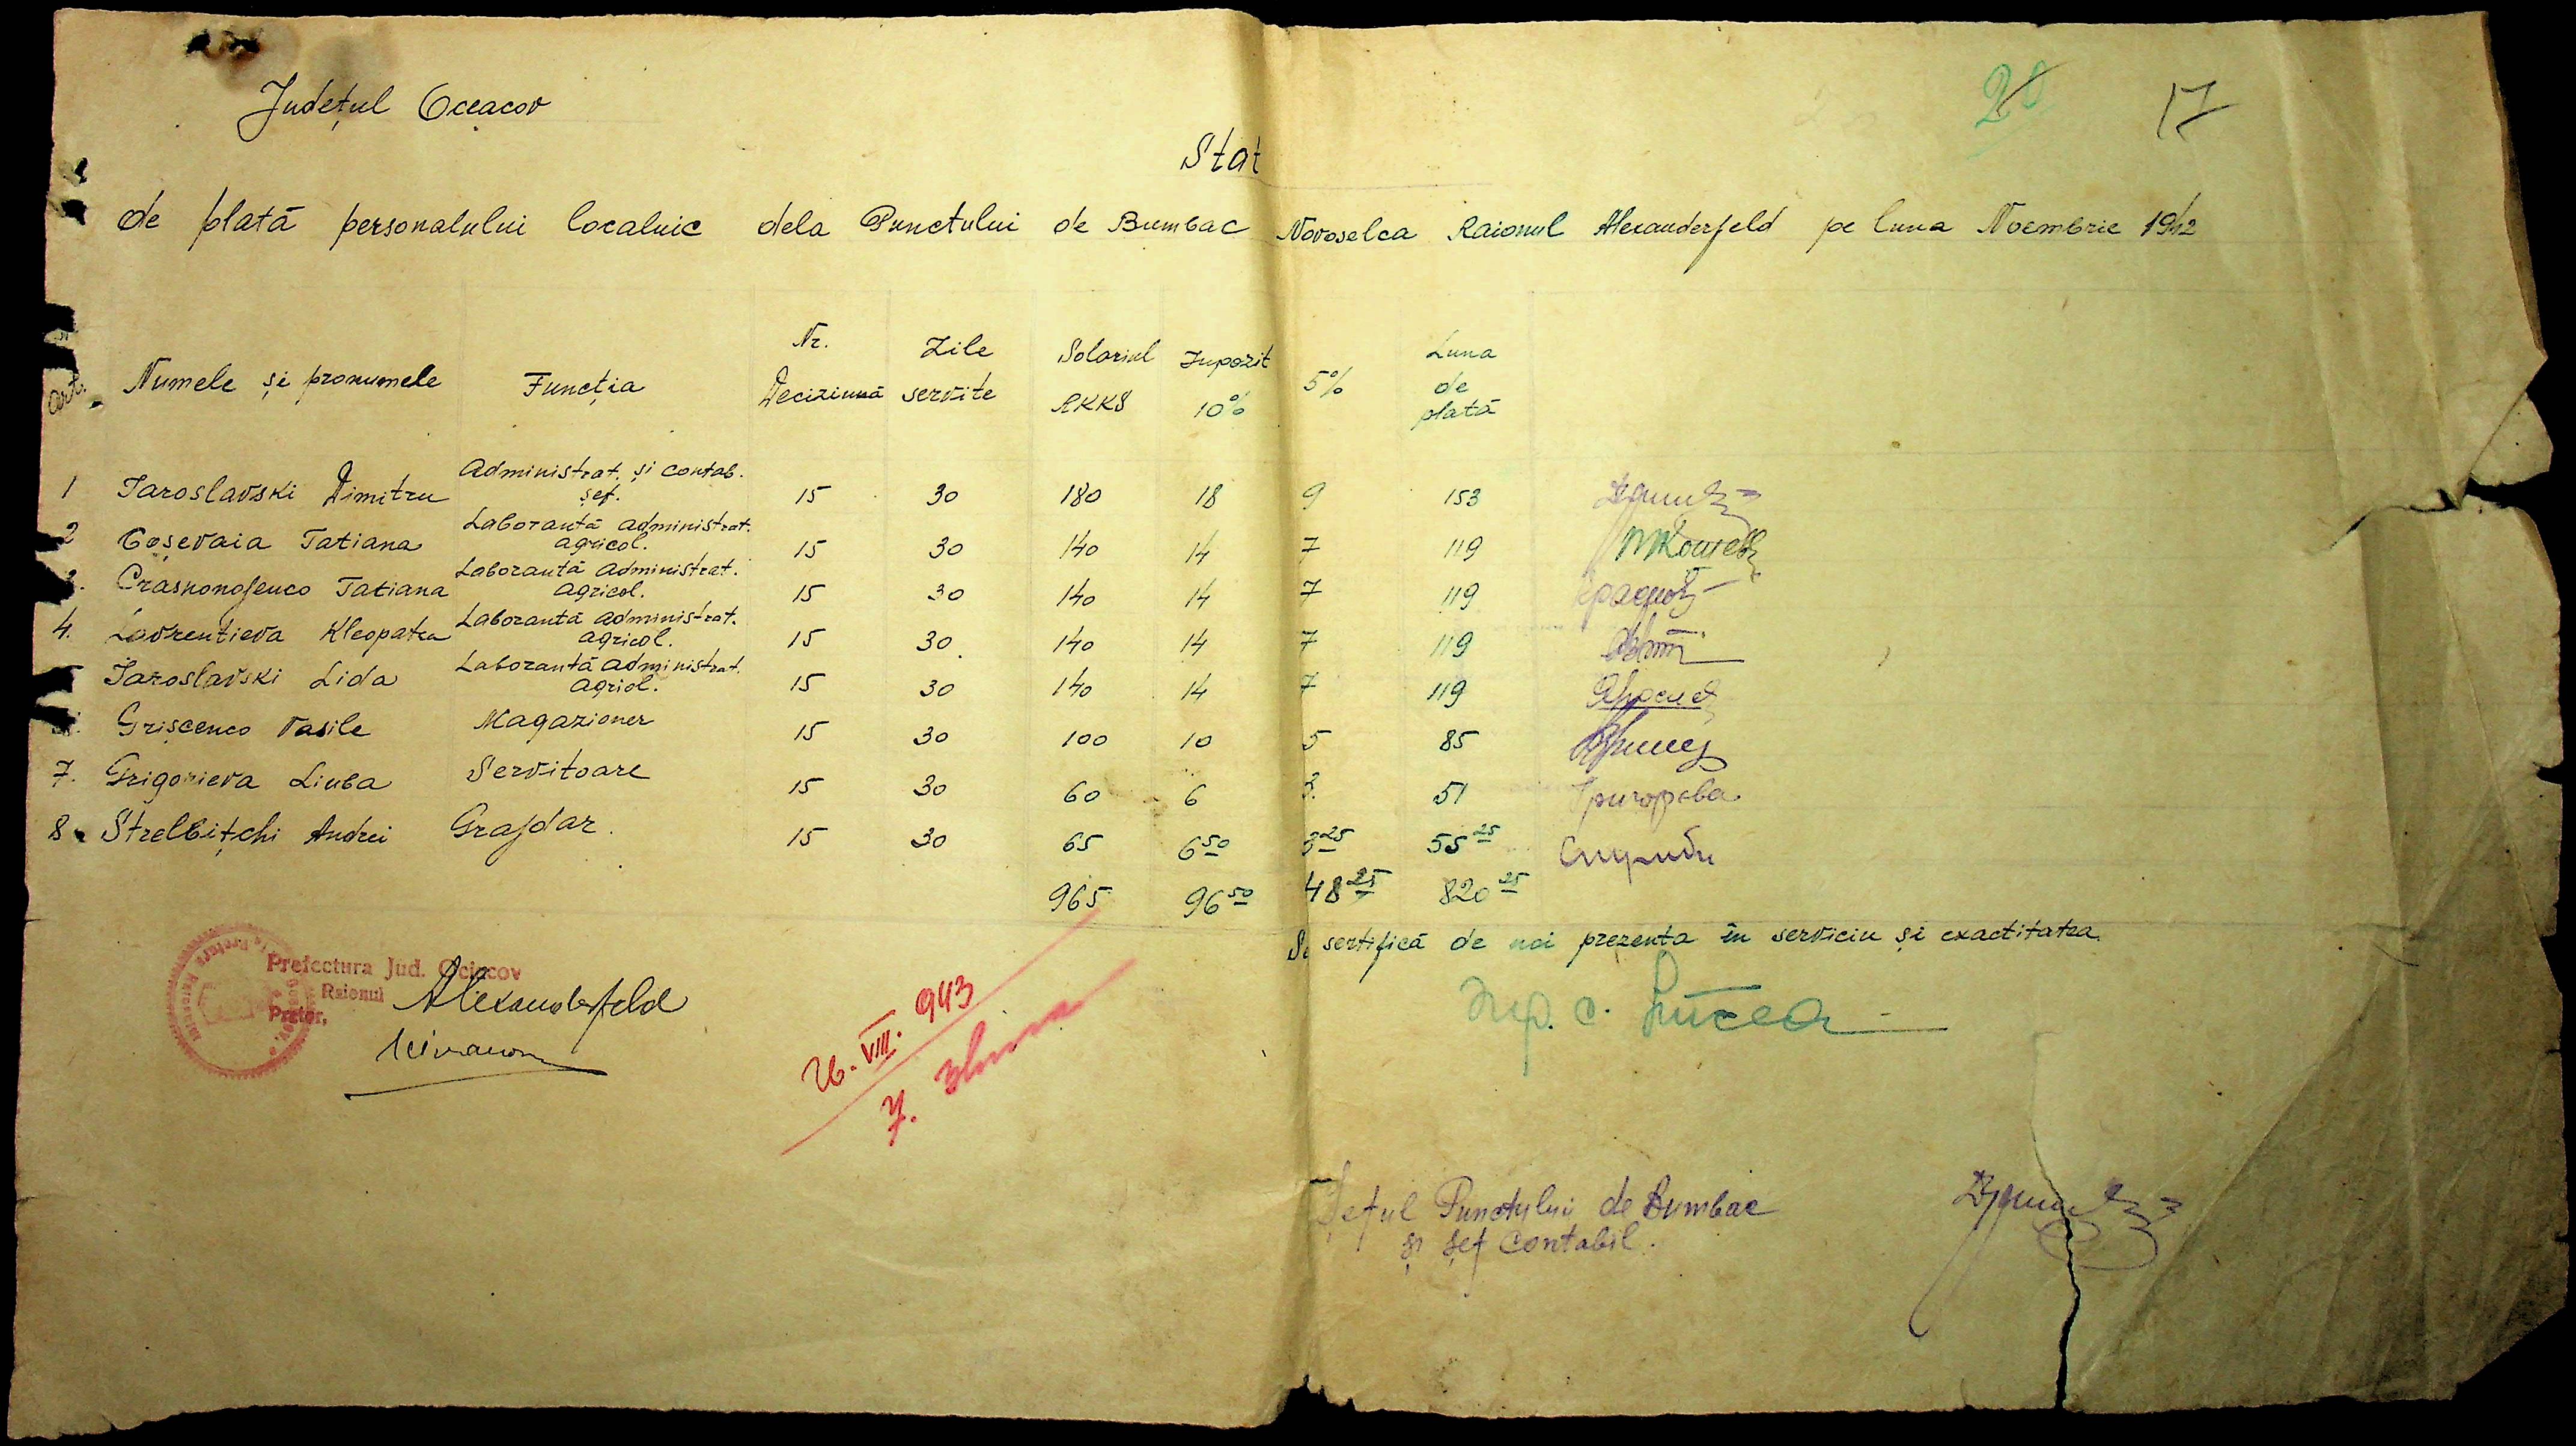 Județul Oceacov
20 17
Stat
de plată personalului localnic dela Punctului de Bumbac Novoselca Raionul Alexanderfeld pe luna Noembrie 1942
art. Numele și pronumele Funcția Nr. Deciziună Zile servite Solariul RKKS Inpozit 10% 5% Luna de plată
1 Iaroslavski Dimitru Administrat. și contab. șef. 15 30 180 18 9 153
2 Coșevaia Tatiana Laborantă administrat. agricol. 15 30 140 14 7 119
3. Crasnonojenco Tatiana Laborantă administrat. agricol. 15 30 140 14 7 119
4. Lavrentieva Kleopatra Laborantă administrat. agricol. 15 30 140 14 7 119
Iaroslavski Lida Laborantă administrat. agriol. 15 30 140 14 7 119
Grișcenco Vasile Magazioner 15 30 100 10 5 85
7. Grigorieva Liuba Servitoare 15 30 60 6 3. 51 Григорева
8. Strelbițchi Andrei Grajdar. 15 30 65 6 50 3 25 55 25
965 96 50 48 25 820 25
Se sertifică de noi prezenta în serviciu și exactitatea.
Prefectura Jud. Ociacov
Raionul Alexanderfeld
Pretor,
26. VIII. 943
Șeful Punctului de Bumbac
și șef contabil.